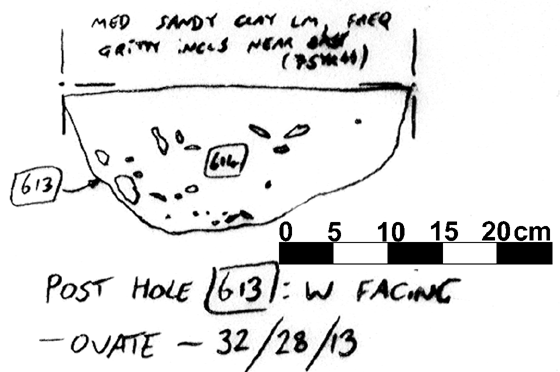 MED SANDY CLAY LM, FREQ
GRITTY INCLS NEAR
614
613
0 5 10 15 20cm
POST HOLE 613: W FACING
- OVATE ~ 32/28/13